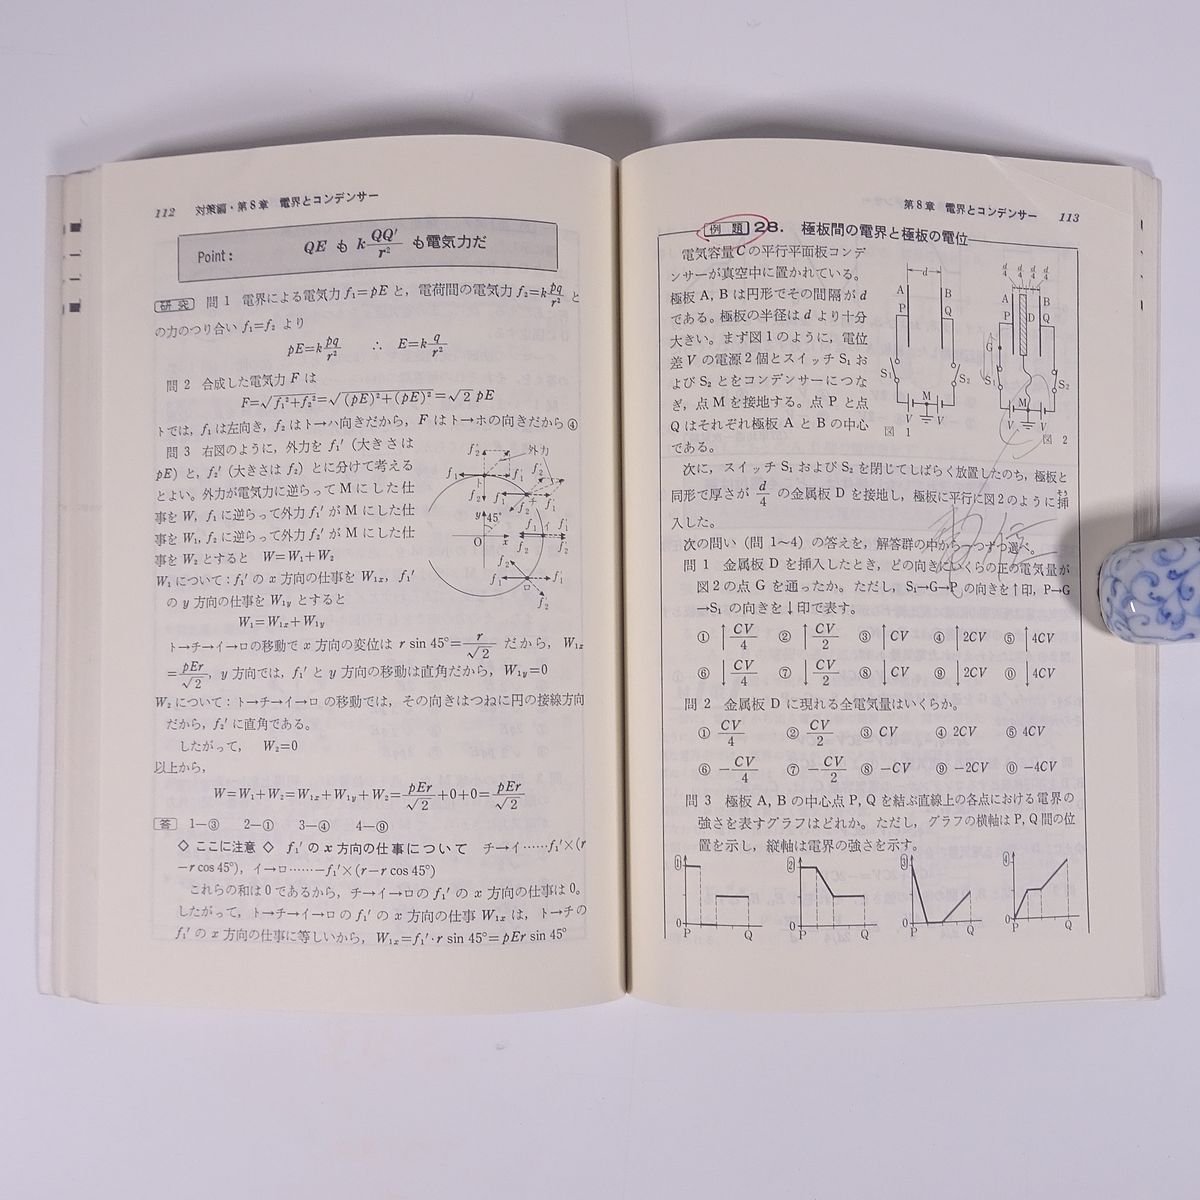 112 対策編・第8章 電界とコンデンサー
Point: QE も k QQ'/r² も電気力だ
研究 問1 電界による電気力 f₁=pE と,電荷間の電気力 f₂=k pq/r² と
の力のつり合い f₁=f₂ より
pE=k pq/r² ∴ E=k q/r²
問2 合成した電気力 F は
F=√(f₁²+f₂²)=√((pE)²+(pE)²)=√2 pE
トでは,f₁は左向き,f₂はト→ハ向きだから,F はト→ホの向きだから④
問3 右図のように,外力を f₁'(大きさは
pE)と,f₂'(大きさは f₂)とに分けて考える
とよい。外力が電気力に逆らって M にした仕
事を W, f₁に逆らって外力 f₁' が M にした仕
事を W₁, f₂に逆らって外力 f₂' が M にした仕
事を W₂ とすると W=W₁+W₂
W₁について:f₁' の x 方向の仕事を W₁ₓ, f₁'
の y 方向の仕事を W₁y とすると
W₁=W₁ₓ+W₁y
ト→チ→イ→ロの移動で x 方向の変位は r sin 45°=r/√2 だから, W₁ₓ
=pEr/√2, y 方向では, f₁' と y 方向の移動は直角だから, W₁y=0
W₂について:ト→チ→イ→ロ の移動では,その向きはつねに円の接線方向
だから, f₂' に直角である。
したがって, W₂=0
以上から,
W=W₁+W₂=W₁ₓ+W₁y+W₂=pEr/√2+0+0=pEr/√2
答 1―③ 2―① 3―④ 4―⑨
◇ ここに注意 ◇ f₁' の x 方向の仕事について チ→イ……f₁'×(r
−r cos 45°), イ→ロ……−f₁'×(r−r cos 45°)
これらの和は0であるから,チ→イ→ロの f₁' の x 方向の仕事は0。
したがって,ト→チ→イ→ロの f₁' の x 方向の仕事 W₁ₓ は,ト→チの
f₁' の x 方向の仕事に等しいから, W₁ₓ=f₁'・r sin 45°=pEr sin 45°
外力
45°
y
O
x
第8章 電界とコンデンサー 113
例題 28. 極板間の電界と極板の電位
電気容量 C の平行平面板コンデ
ンサーが真空中に置かれている。
極板 A, B は円形でその間隔が d
である。極板の半径は d より十分
大きい。まず図1のように,電位
差 V の電源2個とスイッチ S₁ お
よび S₂ とをコンデンサーにつな
ぎ,点 M を接地する。点 P と点
Q はそれぞれ極板 A と B の中心
である。
d
A B
P Q
S₁ S₂
M
V V
図 1
d/4 d/4 d/4 d/4
A B
P D Q
G
S₁ S₂
M
V V
図 2
次に,スイッチ S₁ および S₂ を閉じてしばらく放置したのち,極板と
同形で厚さが d/4 の金属板 D を接地し,極板に平行に図2のように挿
入した。
次の問い(問1~4)の答えを,解答群の中から一つずつ選べ。
問1 金属板 D を挿入したとき,どの向きにいくらの正の電気量が
図2の点 G を通ったか。ただし, S₁→G→P の向きを↑印, P→G
→S₁ の向きを↓印で表す。
① ↑CV/4 ② ↑CV/2 ③ ↑CV ④ ↑2CV ⑤ ↑4CV
⑥ ↓CV/4 ⑦ ↓CV/2 ⑧ ↓CV ⑨ ↓2CV ⓪ ↓4CV
問2 金属板 D に現れる全電気量はいくらか。
① CV/4 ② CV/2 ③ CV ④ 2CV ⑤ 4CV
⑥ −CV/4 ⑦ −CV/2 ⑧ −CV ⑨ −2CV ⓪ −4CV
問3 極板 A, B の中心点 P, Q を結ぶ直線上の各点における電界の
強さを表すグラフはどれか。ただし,グラフの横軸は P, Q 間の位
置を示し,縦軸は電界の強さを示す。
① ② ③ ④
0 0 0 0
P Q P Q P Q P Q